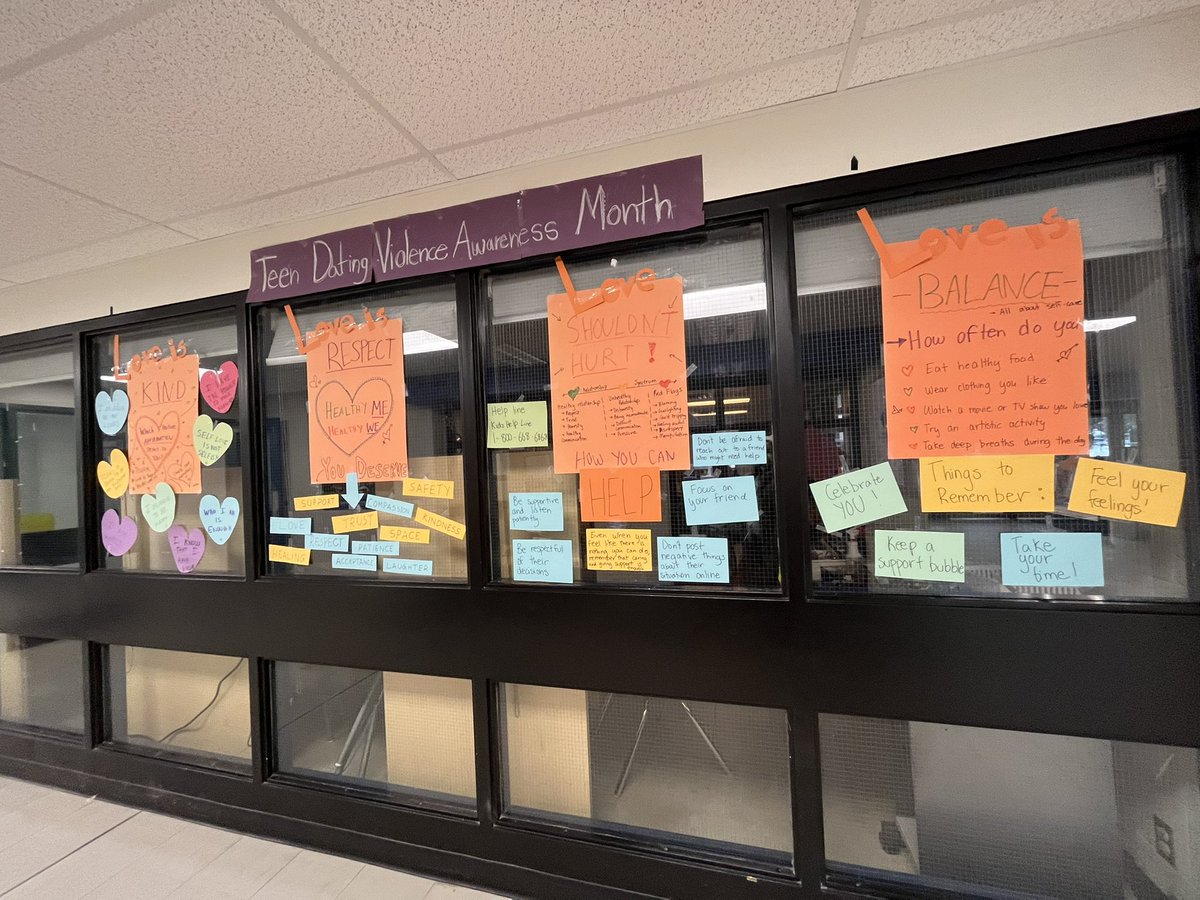 Teen Dating Violence Awareness Month
Love is
KIND
SELF LOVE
IS NOT
SELFISH
WHO I AM
IS ENOUGH
I KNOW
THAT I
Love is
RESPECT
HEALTHY ME
HEALTHY WE
YOU DESERVE
SUPPORT
COMPASSION
SAFETY
LOVE
TRUST
KINDNESS
SPACE
RESPECT
PATIENCE
HEALING
ACCEPTANCE
LAUGHTER
Love
SHOULDN'T
HURT!
Relationship Spectrum
Healthy relationship
Unhealthy
Relationship
Red Flags
Respect
Trust
Honesty
Healthy
Communication
Gaslighting
Manipulation
HOW YOU CAN
HELP
Help line
Kids Help Line
1-800-668-6868
Be supportive
and listen
patiently
Be respectful
of their
decisions
Even when you
feel like there is
nothing you can do,
remember that caring
and giving support is
enough
Dont be afraid to
reach out to a friend
who might need help
Focus on
your friend
Dont post
negative things
about their
situation online
Love is
- BALANCE -
- All about self-care
How often do you
Eat healthy food
Wear clothing you like
Watch a movie or TV show you love
Try an artistic activity
Take deep breaths during the day
Celebrate
YOU!
Things to
Remember:
Feel your
feelings!
Keep a
support bubble
Take
your
time!